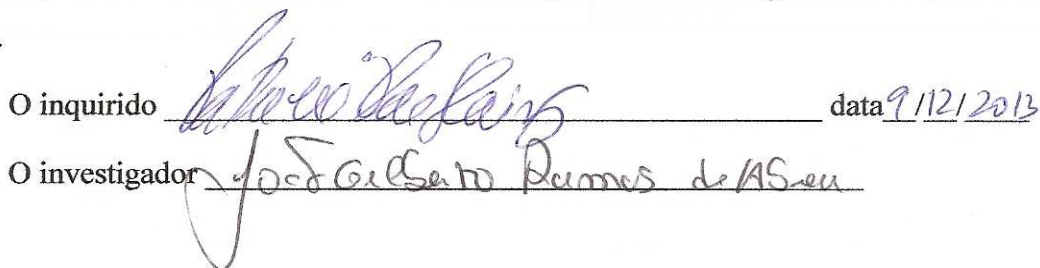 O inquirido data 9/12/2013
O investigador João Gilberto Ramos de Abreu